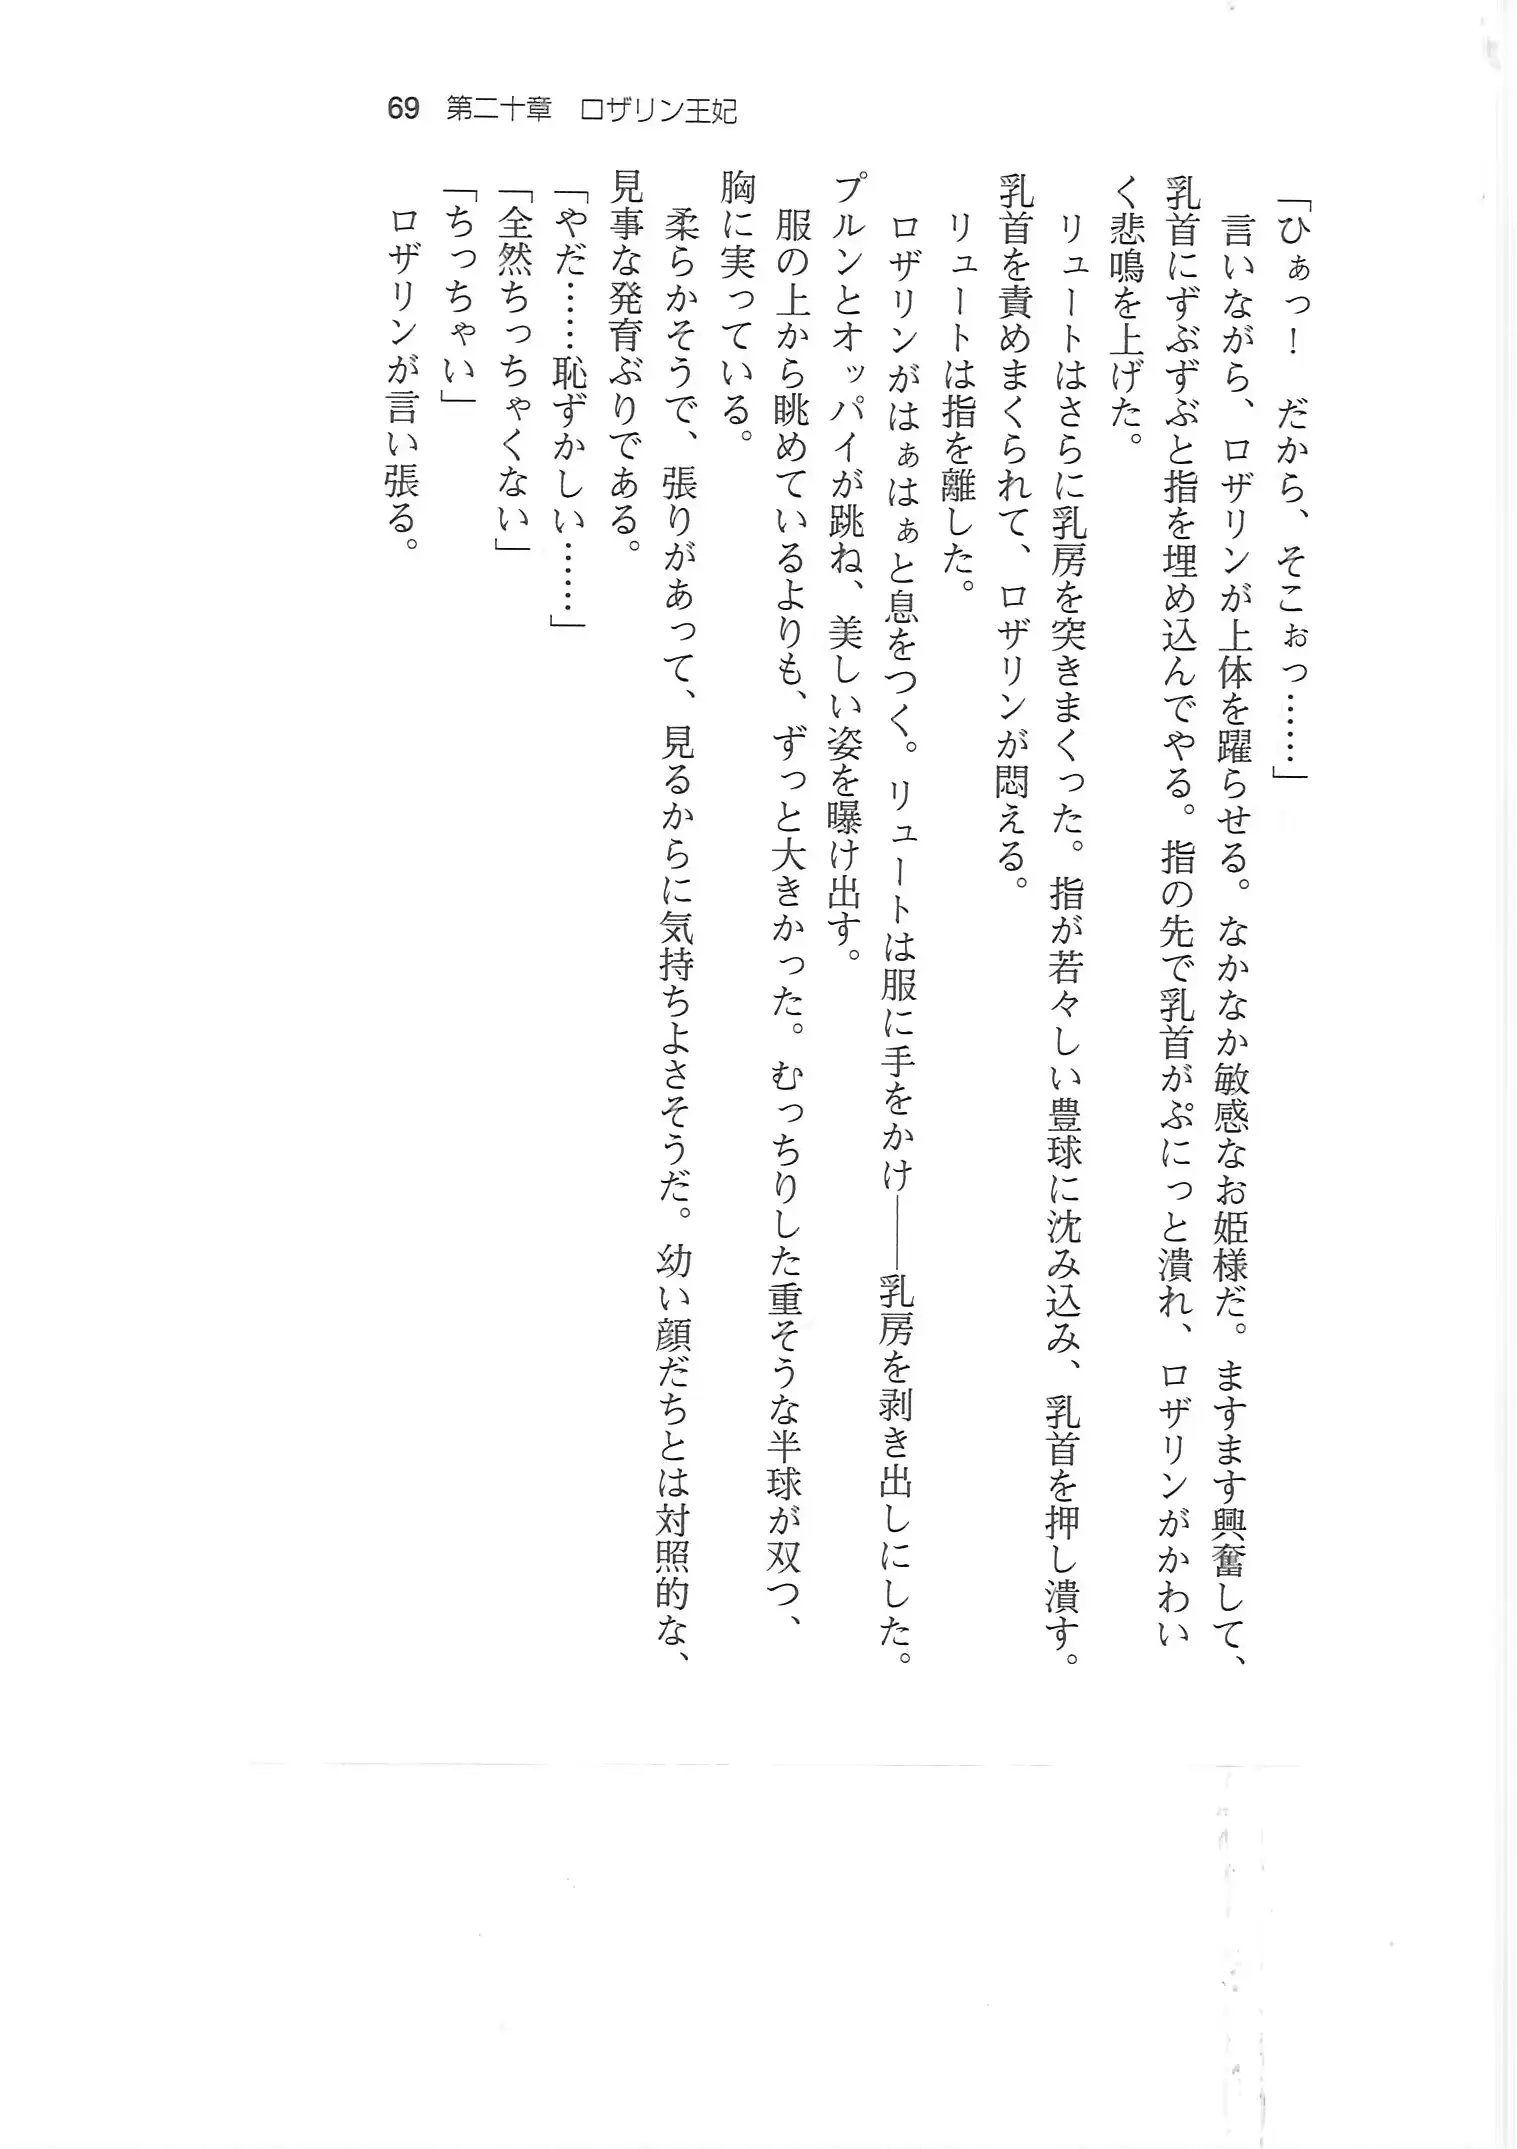 69 第二十章　ロザリン王妃
「ひぁっ！　だから、そこぉっ……」
言いながら、ロザリンが上体を躍らせる。なかなか敏感なお姫様だ。ますます興奮して、
乳首にずぶずぶと指を埋め込んでやる。指の先で乳首がぷにっと潰れ、ロザリンがかわい
く悲鳴を上げた。
リュートはさらに乳房を突きまくった。指が若々しい豊球に沈み込み、乳首を押し潰す。
乳首を責めまくられて、ロザリンが悶える。
リュートは指を離した。
ロザリンがはぁはぁと息をつく。リュートは服に手をかけ――乳房を剥き出しにした。
プルンとオッパイが跳ね、美しい姿を曝け出す。
服の上から眺めているよりも、ずっと大きかった。むっちりした重そうな半球が双つ、
胸に実っている。
柔らかそうで、張りがあって、見るからに気持ちよさそうだ。幼い顔だちとは対照的な、
見事な発育ぶりである。
「やだ……恥ずかしい……」
「全然ちっちゃくない」
「ちっちゃい」
ロザリンが言い張る。